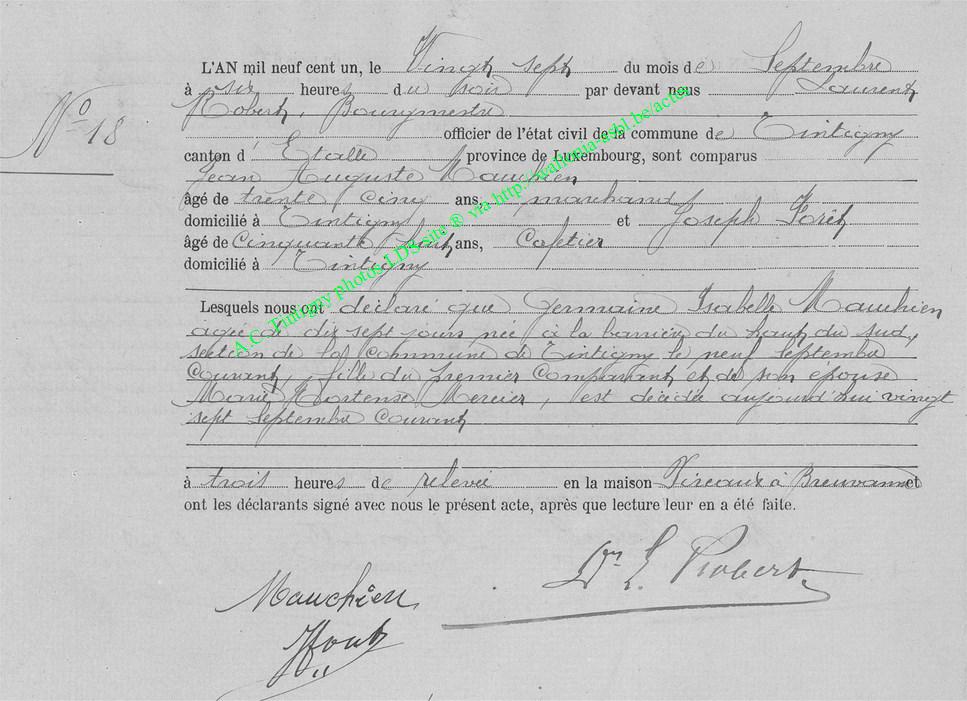 L'AN mil neuf cent un, le Vingt sept du mois de Septembre
à six heures du soir par devant nous Laurent
Robert, Bourgmestre
N° 18
officier de l'état civil de la commune de Tintigny
canton d'Etalle province de Luxembourg, sont comparus
Jean Auguste Mauchien
âgé de trente cinq ans, marchand
domicilié à Tintigny et Joseph
âgé de Cinquante ans, Cafetier
domicilié à Tintigny
Lesquels nous ont déclaré que Germaine Isabelle Mauchien
agée de dix sept jours née à la barrière du haut du sud,
section de la commune de Tintigny le neuf Septembre
Courant, fille du premier Comparant et de son épouse
Marie Hortense Mercier, est décédée aujourd'hui vingt
sept Septembre Courant
à trois heures de relevée en la maison à Breuvanne et
ont les déclarants signé avec nous le présent acte, après que lecture leur en a été faite.
Dr L. Robert
Mauchien
A.C. Tintigny photos LDS site ® via http://wallonia-asbl.be/actes